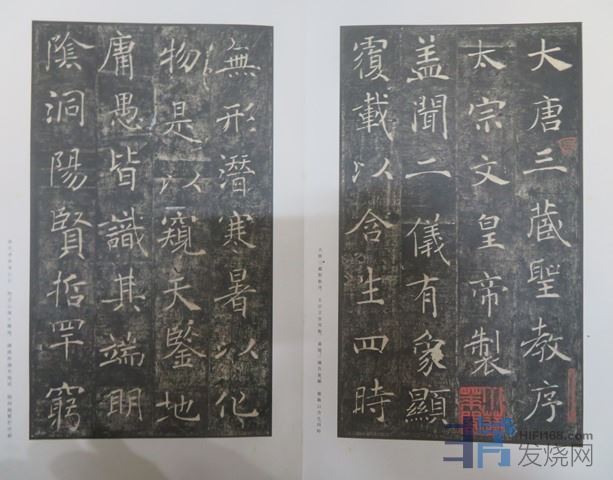 大唐三藏聖教序
太宗文皇帝製
盖聞二儀有象顯
覆載以含生四時
無形潛寒暑以化
物是以窺天鑒地
庸愚皆識其端明
陰洞陽賢哲罕窮
HIFI168.com
发烧网